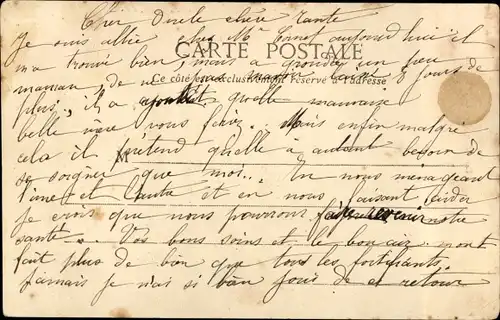 Cher Oncle chère Tante
Je suis allée chez Mr aujourd'hui il
CARTE POSTALE
m'a trouvé bien, mais a grondé un peu
Ce côté est exclusivement réservé à l'adresse
maman de ne pas 8 jours de
plus, il a ajouté quelle mauvaise
belle mère vous chez... Mais enfin malgré
cela il prétend quelle à autant besoin de
M
se soigner que moi... En nous menageant
l'une et l'autre et en nous faisant aider
je crois que nous pourrons faire revenir notre
santé... Vos bons soins et le bon air m'ont
fait plus de bien que tous les fortifiants.
Jamais je n'ai si bien joui de et retour